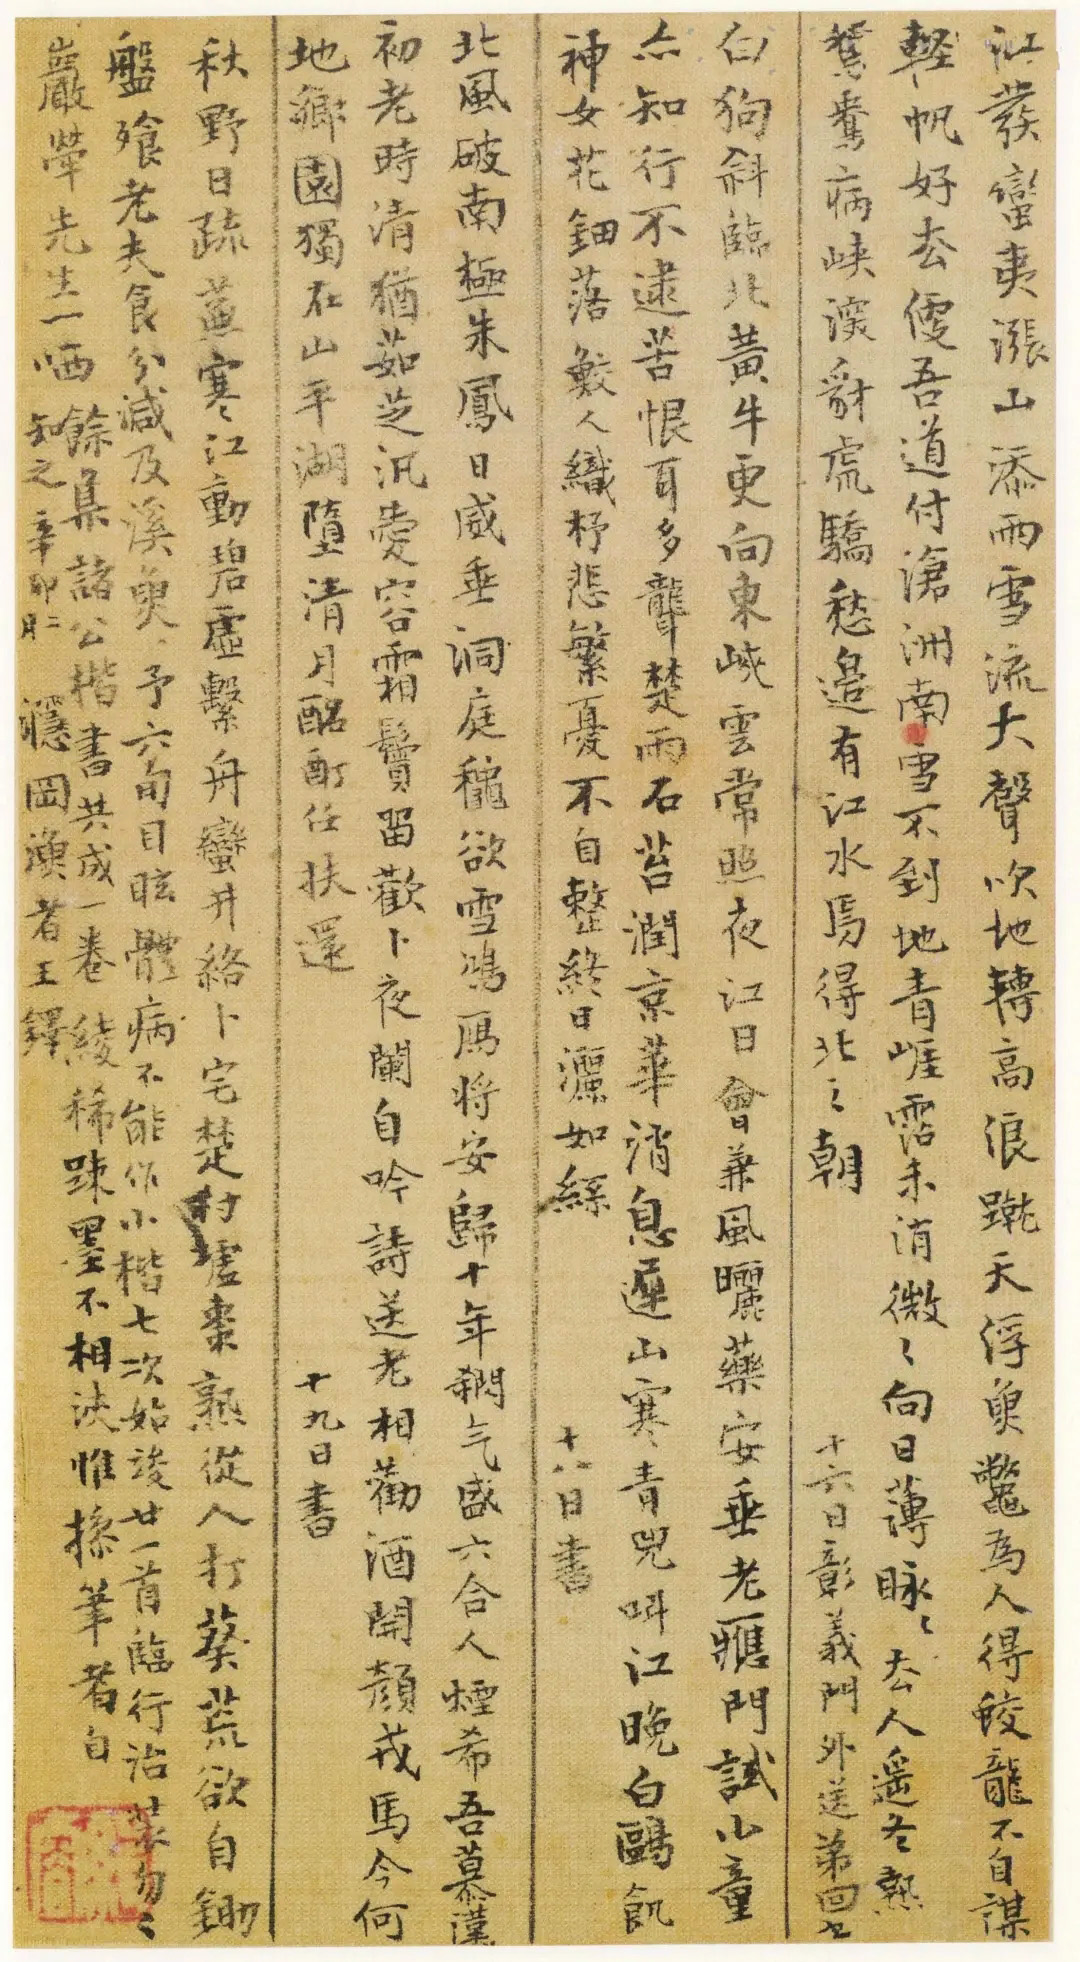 江發蠻夷漲山添雨雪流大聲吹地轉高浪蹴天浮魚鼈為人得蛟龍不自謀
輕帆好去便吾道付滄洲南雪不到地青崖霑未消微〻向日薄脉〻去人遥冬熱
鴛鴦病峽深豺虎驕愁邊有江水焉得北之朝 十六日彰義門外送第回書
白狗斜臨北黃牛更向東峽雲常照夜江日會兼風曬藥安垂老應門試小童
亦知行不逮苦恨耳多聾楚雨石苔潤京華消息遲山寒青兕叫江晚白鷗飢
神女花鈿落鮫人織杼悲繁憂不自整終日灑如絲 十八日書
北風破南極朱鳳日威垂洞庭秋欲雪鴻雁將安歸十年殺气盛六合人煙稀吾慕漢
初老時清猶茹芝汎愛容霜鬢留歡卜夜闌自吟詩送老相勸酒開顏戎馬今何
地鄉園獨在山平湖墮清月酩酊任扶還 十九日書
秋野日疏蕪寒江動碧虛繫舟蠻井絡卜宅楚村墟棗熟從人打葵荒欲自鋤
盤飱老夫食分減及溪魚、予六旬目眩體病不能作小楷七次始竣廿一首臨行治裝勿〻
巖犖先生一哂 餘集諸公楷書共成一卷 綾稀踈墨不相浹惟搽筆者自
知之 辛卯二月 癮岡漁者王鐸